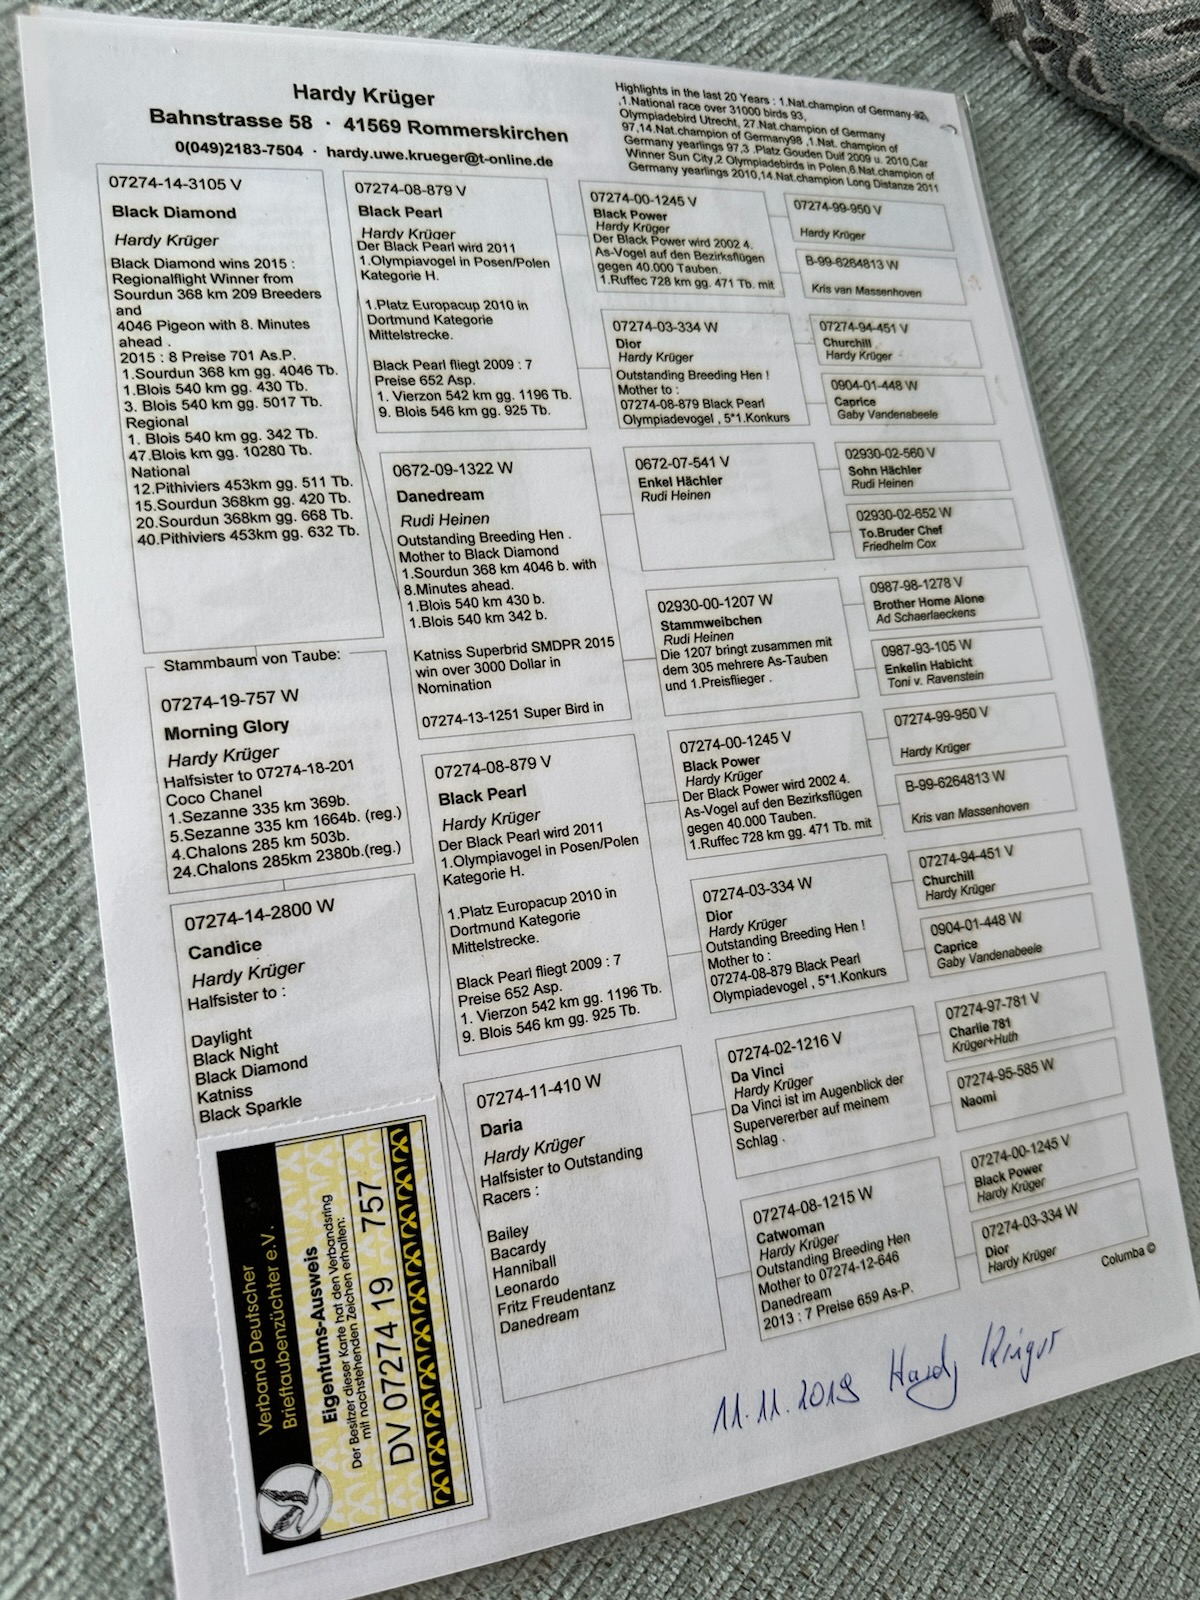 Hardy Krüger
Bahnstrasse 58 · 41569 Rommerskirchen
0(049)2183-7504 · hardy.uwe.krueger@t-online.de
Highlights in the last 20 Years : 1.Nat.champion of Germany-92,
,1.National race over 31000 birds 93,
Olympiadebird Utrecht, 27.Nat.champion of Germany
97,14.Nat.champion of Germany98 ,1.Nat. champion of
Germany yearlings 97,3 .Platz Gouden Duif 2009 u. 2010,Car
Winner Sun City,2 Olympiadebirds in Polen,6.Nat.champion of
Germany yearlings 2010,14.Nat.champion Long Distanze 2011
07274-14-3105 V
Black Diamond
Hardy Krüger
Black Diamond wins 2015 :
Regionalflight Winner from
Sourdun 368 km 209 Breeders
and
4046 Pigeon with 8. Minutes
ahead .
2015 : 8 Preise 701 As.P.
1.Sourdun 368 km gg. 4046 Tb.
1.Blois 540 km gg. 430 Tb.
3. Blois 540 km gg. 5017 Tb.
Regional
1. Blois 540 km gg. 342 Tb.
47.Blois km gg. 10280 Tb.
National
12.Pithiviers 453km gg. 511 Tb.
15.Sourdun 368km gg. 420 Tb.
20.Sourdun 368km gg. 668 Tb.
40.Pithiviers 453km gg. 632 Tb.
Stammbaum von Taube:
07274-19-757 W
Morning Glory
Hardy Krüger
Halfsister to 07274-18-201
Coco Chanel
1.Sezanne 335 km 369b.
5.Sezanne 335 km 1664b. (reg.)
4.Chalons 285 km 503b.
24.Chalons 285km 2380b.(reg.)
07274-14-2800 W
Candice
Hardy Krüger
Halfsister to :
Daylight
Black Night
Black Diamond
Katniss
Black Sparkle
07274-08-879 V
Black Pearl
Hardy Krüger
Der Black Pearl wird 2011
1.Olympiavogel in Posen/Polen
Kategorie H.
1.Platz Europacup 2010 in
Dortmund Kategorie
Mittelstrecke.
Black Pearl fliegt 2009 : 7
Preise 652 Asp.
1. Vierzon 542 km gg. 1196 Tb.
9. Blois 546 km gg. 925 Tb.
0672-09-1322 W
Danedream
Rudi Heinen
Outstanding Breeding Hen .
Mother to Black Diamond
1.Sourdun 368 km 4046 b. with
8.Minutes ahead.
1.Blois 540 km 430 b.
1.Blois 540 km 342 b.
Katniss Superbrid SMDPR 2015
win over 3000 Dollar in
Nomination
07274-13-1251 Super Bird in
07274-08-879 V
Black Pearl
Hardy Krüger
Der Black Pearl wird 2011
1.Olympiavogel in Posen/Polen
Kategorie H.
1.Platz Europacup 2010 in
Dortmund Kategorie
Mittelstrecke.
Black Pearl fliegt 2009 : 7
Preise 652 Asp.
1. Vierzon 542 km gg. 1196 Tb.
9. Blois 546 km gg. 925 Tb.
07274-11-410 W
Daria
Hardy Krüger
Halfsister to Outstanding
Racers :
Bailey
Bacardy
Hanniball
Leonardo
Fritz Freudentanz
Danedream
07274-00-1245 V
Black Power
Hardy Krüger
Der Black Power wird 2002 4.
As-Vogel auf den Bezirksflügen
gegen 40.000 Tauben.
1.Ruffec 728 km gg. 471 Tb. mit
07274-03-334 W
Dior
Hardy Krüger
Outstanding Breeding Hen !
Mother to :
07274-08-879 Black Pearl
Olympiadevogel , 5*1.Konkurs
0672-07-541 V
Enkel Hächler
Rudi Heinen
02930-00-1207 W
Stammweibchen
Rudi Heinen
Die 1207 bringt zusammen mit
dem 305 mehrere As-Tauben
und 1.Preisflieger .
07274-00-1245 V
Black Power
Hardy Krüger
Der Black Power wird 2002 4.
As-Vogel auf den Bezirksflügen
gegen 40.000 Tauben.
1.Ruffec 728 km gg. 471 Tb. mit
07274-03-334 W
Dior
Hardy Krüger
Outstanding Breeding Hen !
Mother to :
07274-08-879 Black Pearl
Olympiadevogel , 5*1.Konkurs
07274-02-1216 V
Da Vinci
Hardy Krüger
Da Vinci ist im Augenblick der
Supervererber auf meinem
Schlag .
07274-08-1215 W
Catwoman
Hardy Krüger
Outstanding Breeding Hen
Mother to 07274-12-646
Danedream
2013 : 7 Preise 659 As-P.
07274-99-950 V
Hardy Krüger
B-99-6264813 W
Kris van Massenhoven
07274-94-451 V
Churchill
Hardy Krüger
0904-01-448 W
Caprice
Gaby Vandenabeele
02930-02-560 V
Sohn Hächler
Rudi Heinen
02930-02-652 W
To.Bruder Chef
Friedhelm Cox
0987-98-1278 V
Brother Home Alone
Ad Schaerlaeckens
0987-93-105 W
Enkelin Habicht
Toni v. Ravenstein
07274-99-950 V
Hardy Krüger
B-99-6264813 W
Kris van Massenhoven
07274-94-451 V
Churchill
Hardy Krüger
0904-01-448 W
Caprice
Gaby Vandenabeele
07274-97-781 V
Charlie 781
Krüger+Huth
07274-95-585 W
Naomi
07274-00-1245 V
Black Power
Hardy Krüger
07274-03-334 W
Dior
Hardy Krüger
Columba ©
Verband Deutscher
Brieftaubenzüchter e.V.
Eigentums-Ausweis
Der Besitzer dieser Karte hat den Verbandsring
mit nachstehenden Zeichen erhalten:
DV 07274 19 757
11.11.2019 Hardy Krüger